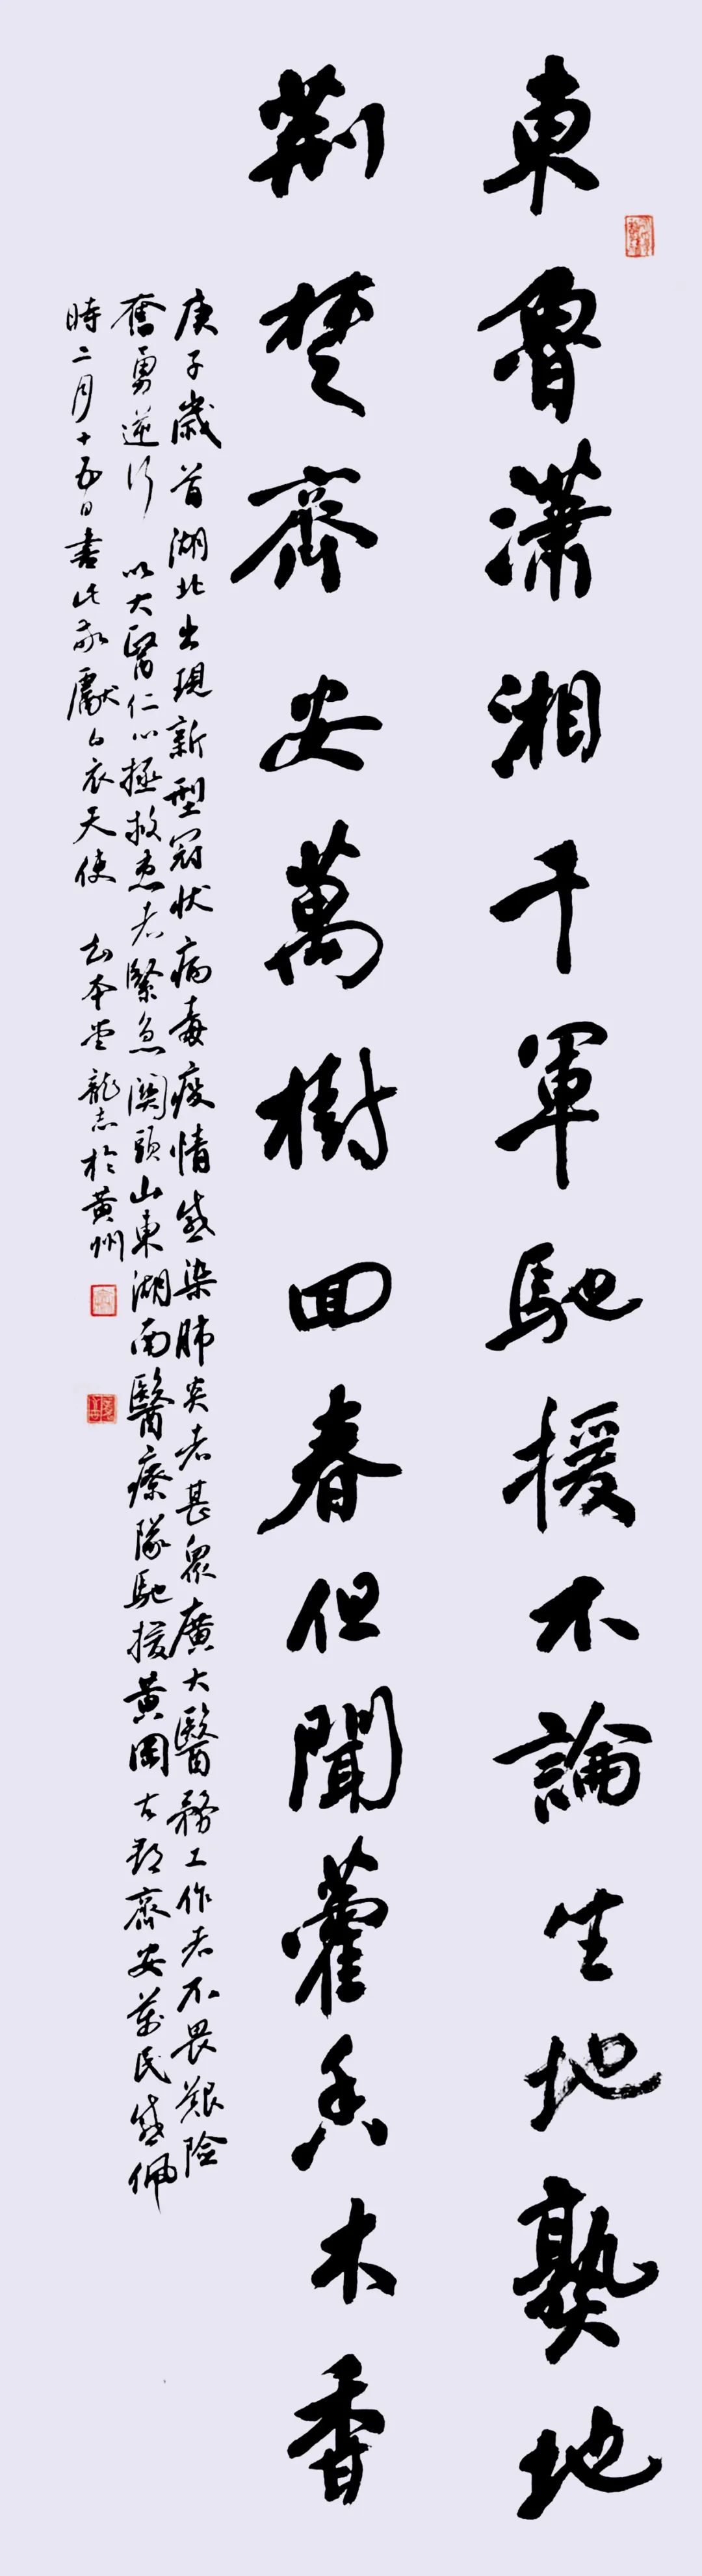 東魯瀟湘千軍馳援不論生地熟地
荊楚齊安萬樹回春但聞藿香木香
庚子歲首湖北出現新型冠狀病毒疫情感染肺炎者甚眾廣大醫務工作者不畏艱險
奮勇逆行以大醫仁心拯救患者緊急關頭山東湖南醫療隊馳援黃岡古郡齊安萬民感佩
時二月十五日書此敬獻白衣天使 知本堂龍志於黃州